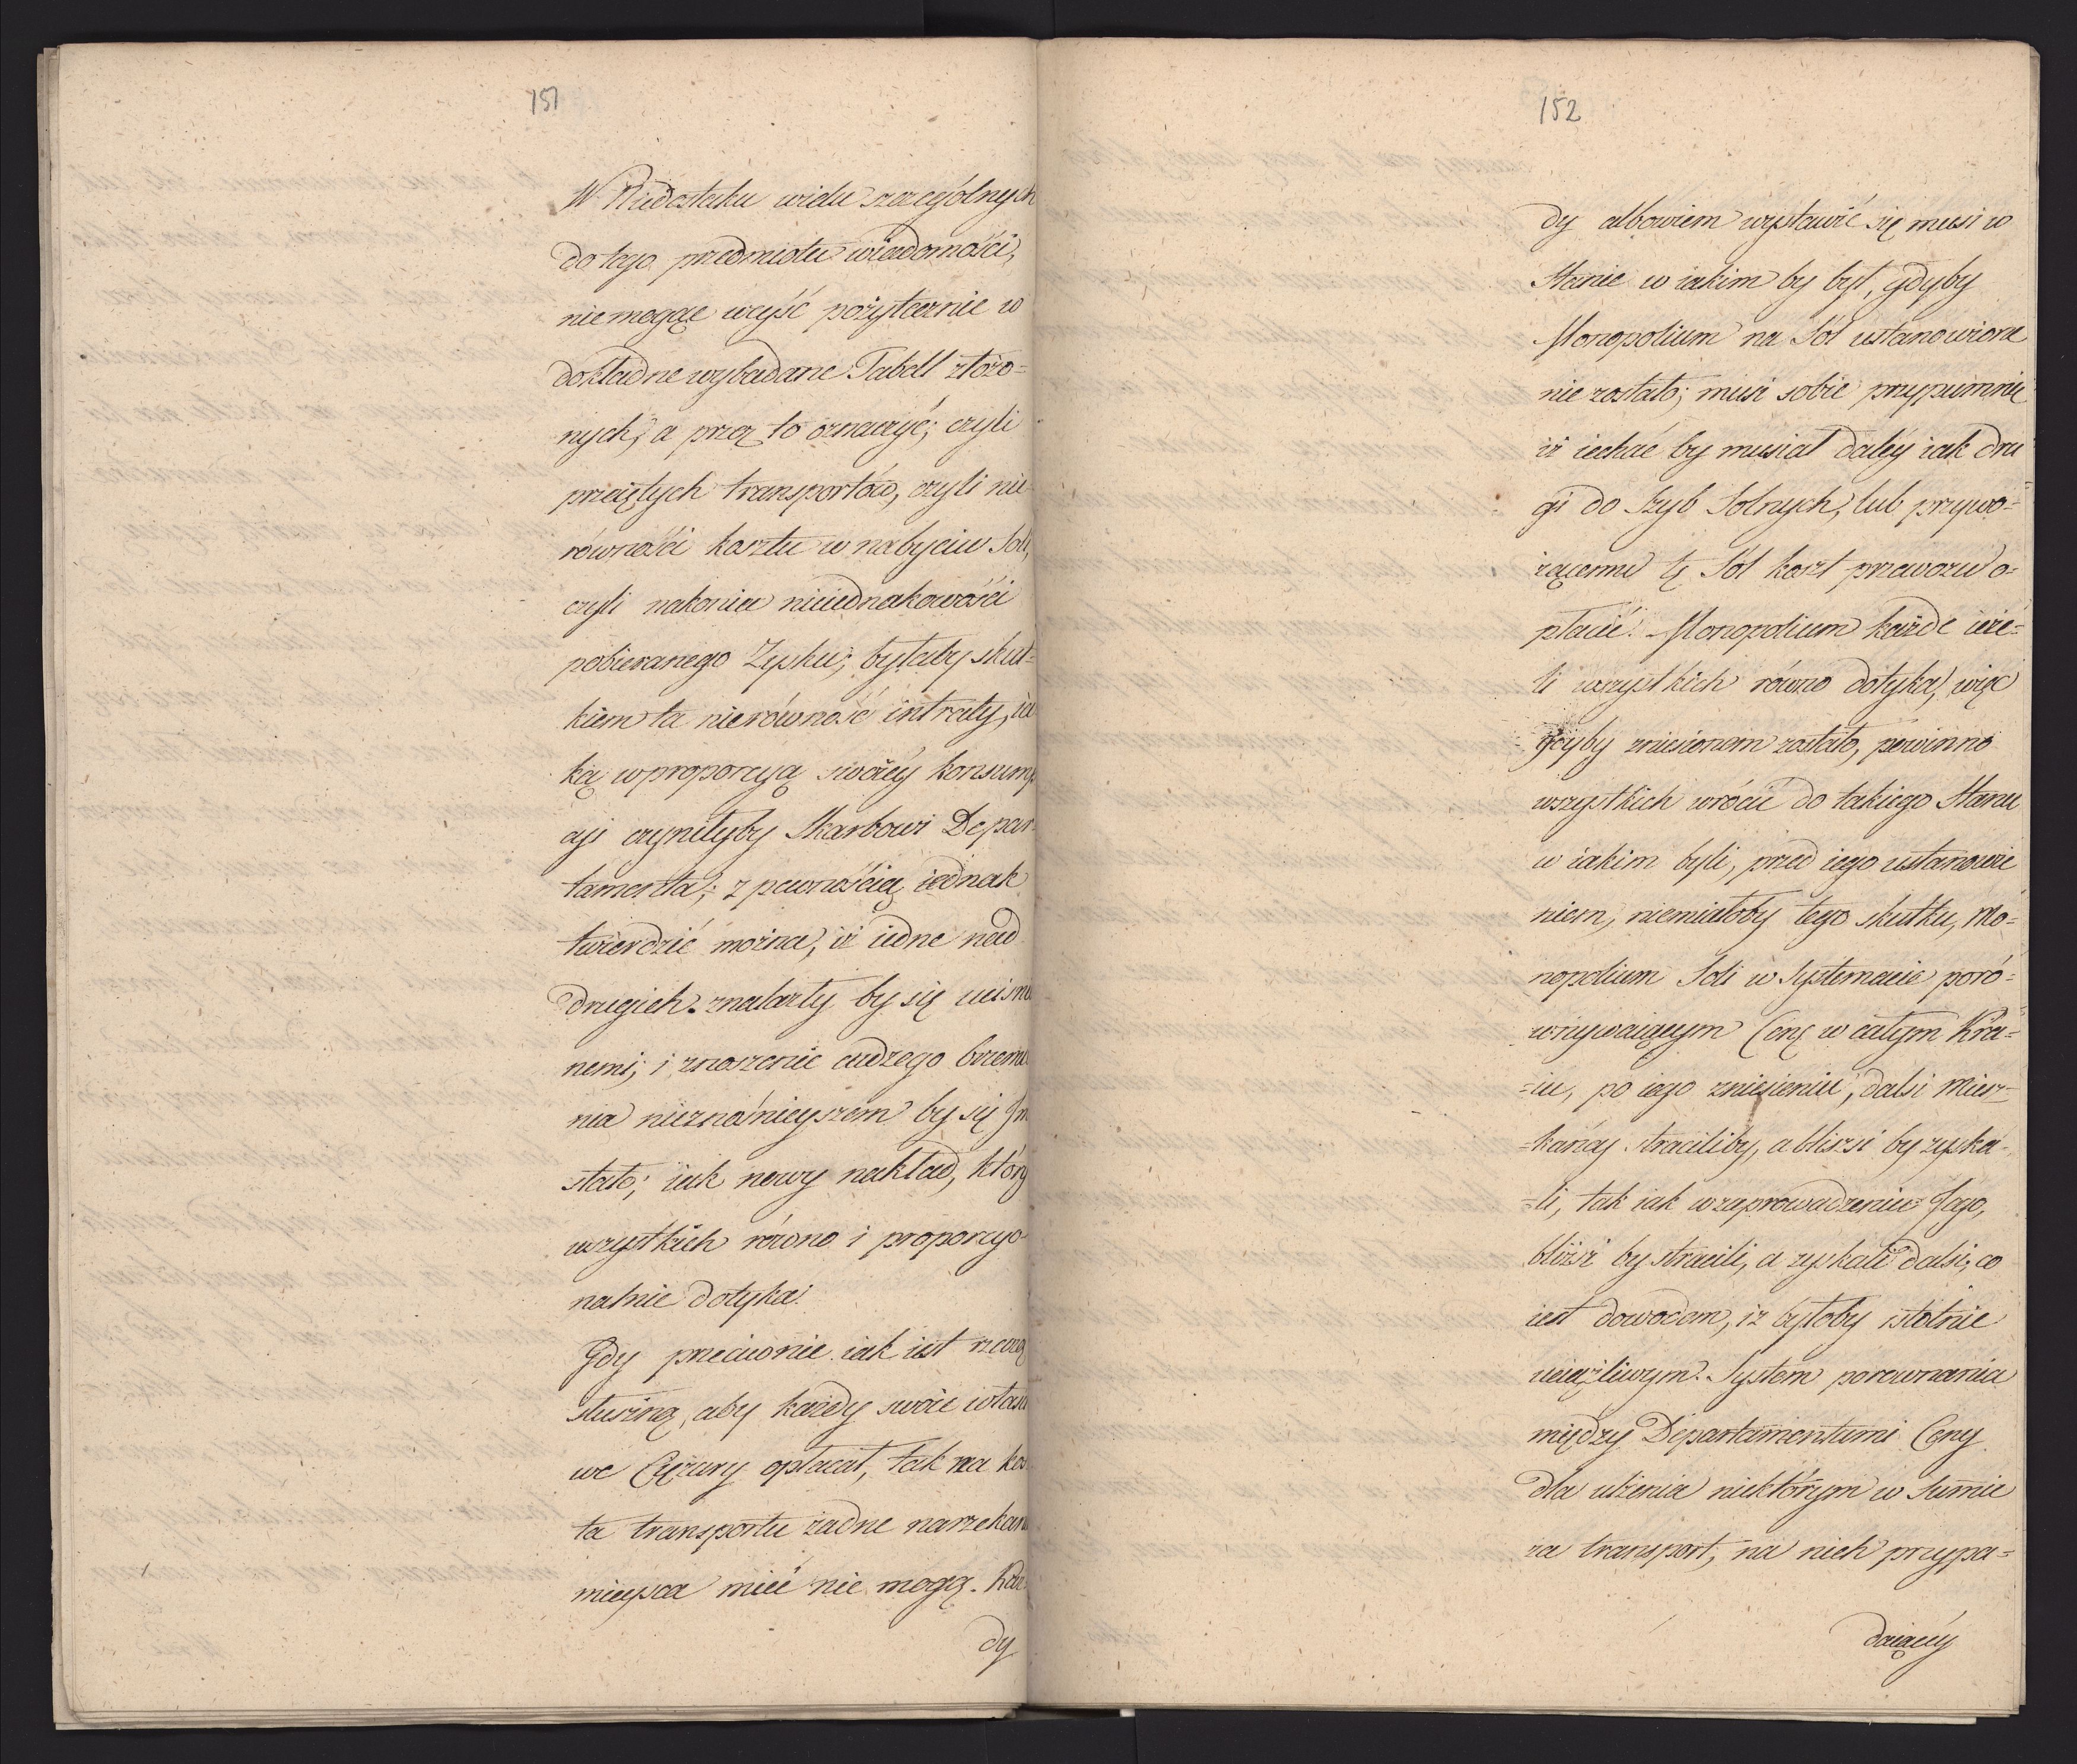 151
W Niedostatku wielu szczególnych
do tego przedmiotu wiadomości,
niemogąc weyść pożytecznie w
dokładne wybadane Tabell złożo=
nych, a przez to oznaczyć; czyli
przeciętych transportów, czyli nie
równości kosztu w nabyciu Soli,
czyli nakoniec nieiednakowości
pobieranego Zysku; byłaby skut=
kiem ta nierówność intraty, ia
ką w proporcyą swoiéy konsump
cyi czyniłyby Skarbowi Depar
tamenta; z pewnością iednak
twierdzić można, iż iedne nad
drugich znalazły by się uciśnio
nemi; i znoszenie cudzego brzemie
nia nieznośnieyszem by się Im
stało; iak nowy nakład, który
wszystkich równo i proporcyo
nalnie dotyka.
Gdy przeciwnie iak iest rzeczą
słuszną, aby każdy swoie własne
we Ciężary opłacał, tak na kos
ta transportu żadne narzekania
mieysca mieć nie mogą. Każ
dy
152
dy albowiem wystawić się musi w
Stanie w iakim by był, gdyby
Monopolium na Sól ustanowione
nie zostało; musi sobie przypomnieć
iż iechać by musiał daléy iak dru
gi do Szyb Solnych, lub przywo=
żącemu tę Sól koszt przewozu o=
płacić. Monopolium każde ieże=
li wszystkich równo dotyka, więc
gdyby zniesionem zostało, powinno
wszystkich wrócić do takiego Stanu
w iakim byli, przed iego ustanowie
niem, niemiałoby tego skutku, Mo=
nopolium Soli w Systemacie poró=
wnywaiącym Cenę w całym Kra=
=iu, po iego zniesieniu, dalsi Miesz=
=kańcy straciliby, a bliżsi by zyska=
=li, tak iak w zaprowadzeniu Jego,
bliżsi by stracili, a zyskali dalsi; co
iest dowodem, iż byłoby istotnie
uciążliwym. System porownania
między Departamentami Ceny
dla ulżenia niektórym w Summie
za transport, na nich przypa=
daiącéy